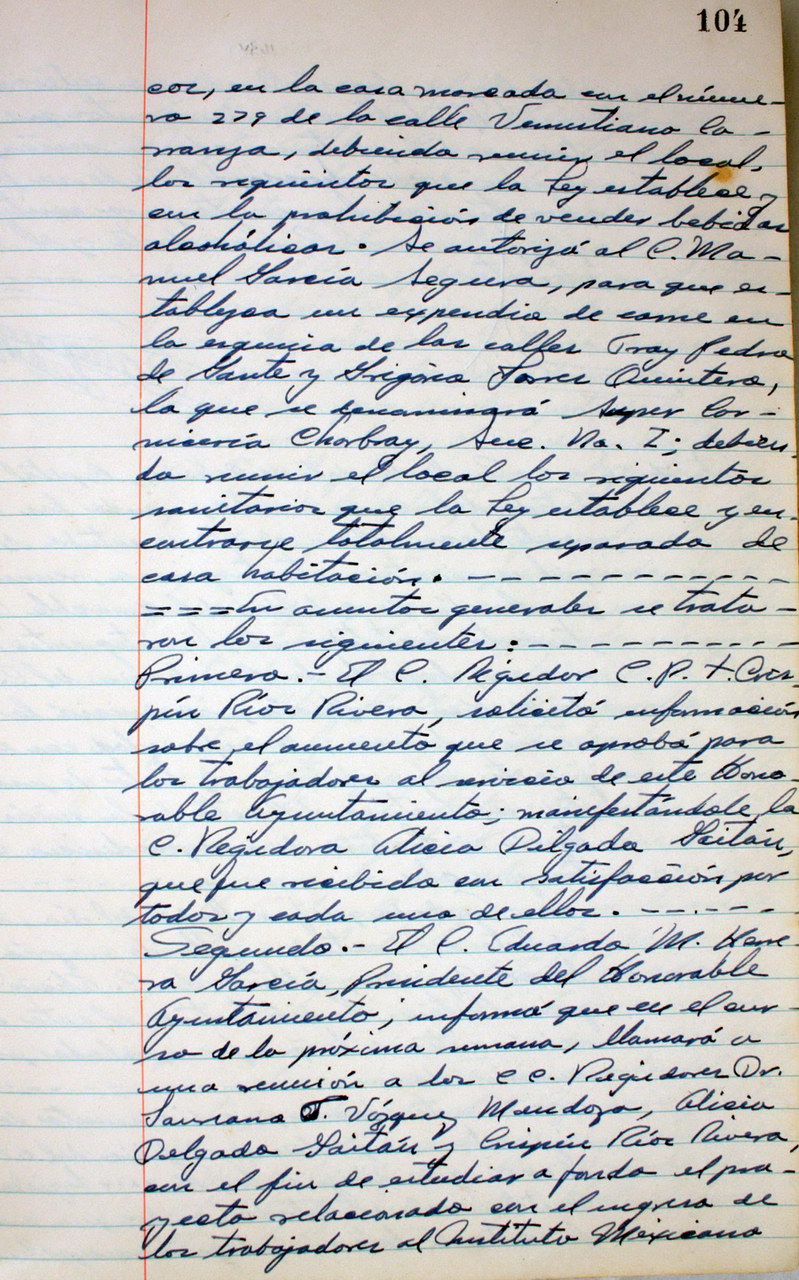 104
cos, en la casa marcada con el núme-
ro 279 de la calle Venustiano Ca-
rranza, debiendo reunir el local,
los requisitos que la Ley establece y
con la prohibición de vender bebidas
alcohólicas. Se autorizó al C. Ma-
nuel García Segura, para que es-
tablezca un expendio de carne en
la esquina de las calles Fray Pedro
de Gante y Grigorio Torres Quintero,
la que se denominará Super Car-
nicería Charbray, Suc. No. I; debien-
do reunir el local los requisitos
sanitarios que la Ley establece y en-
contrarse totalmente separada de
casa habitación. - - - - - - - - - - -
===En asuntos generales se trata-
ron los siguientes: - - - - - - - - - -
Primero.- El C. Regidor C.P. t. Cris-
pín Ríos Rivera, solicitó información
sobre el aumento que se aprobó para
los trabajadores al servicio de este Hono-
rable Ayuntamiento; manifestándole la
C. Regidora Alicia Delgado Gaitán,
que fue recibido con satisfacción por
todos y cada uno de ellos. - - - - - -
Segundo.- El C. Eduardo M. Herre-
ra García, Presidente del Honorable
Ayuntamiento; informó que en el cur-
so de la próxima semana, llamará a
una reunión a los CC. Regidores Dr.
T. Vázquez Mendoza, Alicia
Delgado Gaitán y Crispín Ríos Rivera,
con el fin de estudiar a fondo el pro-
yecto relacionado con el ingreso de
los trabajadores al Instituto Mexicano